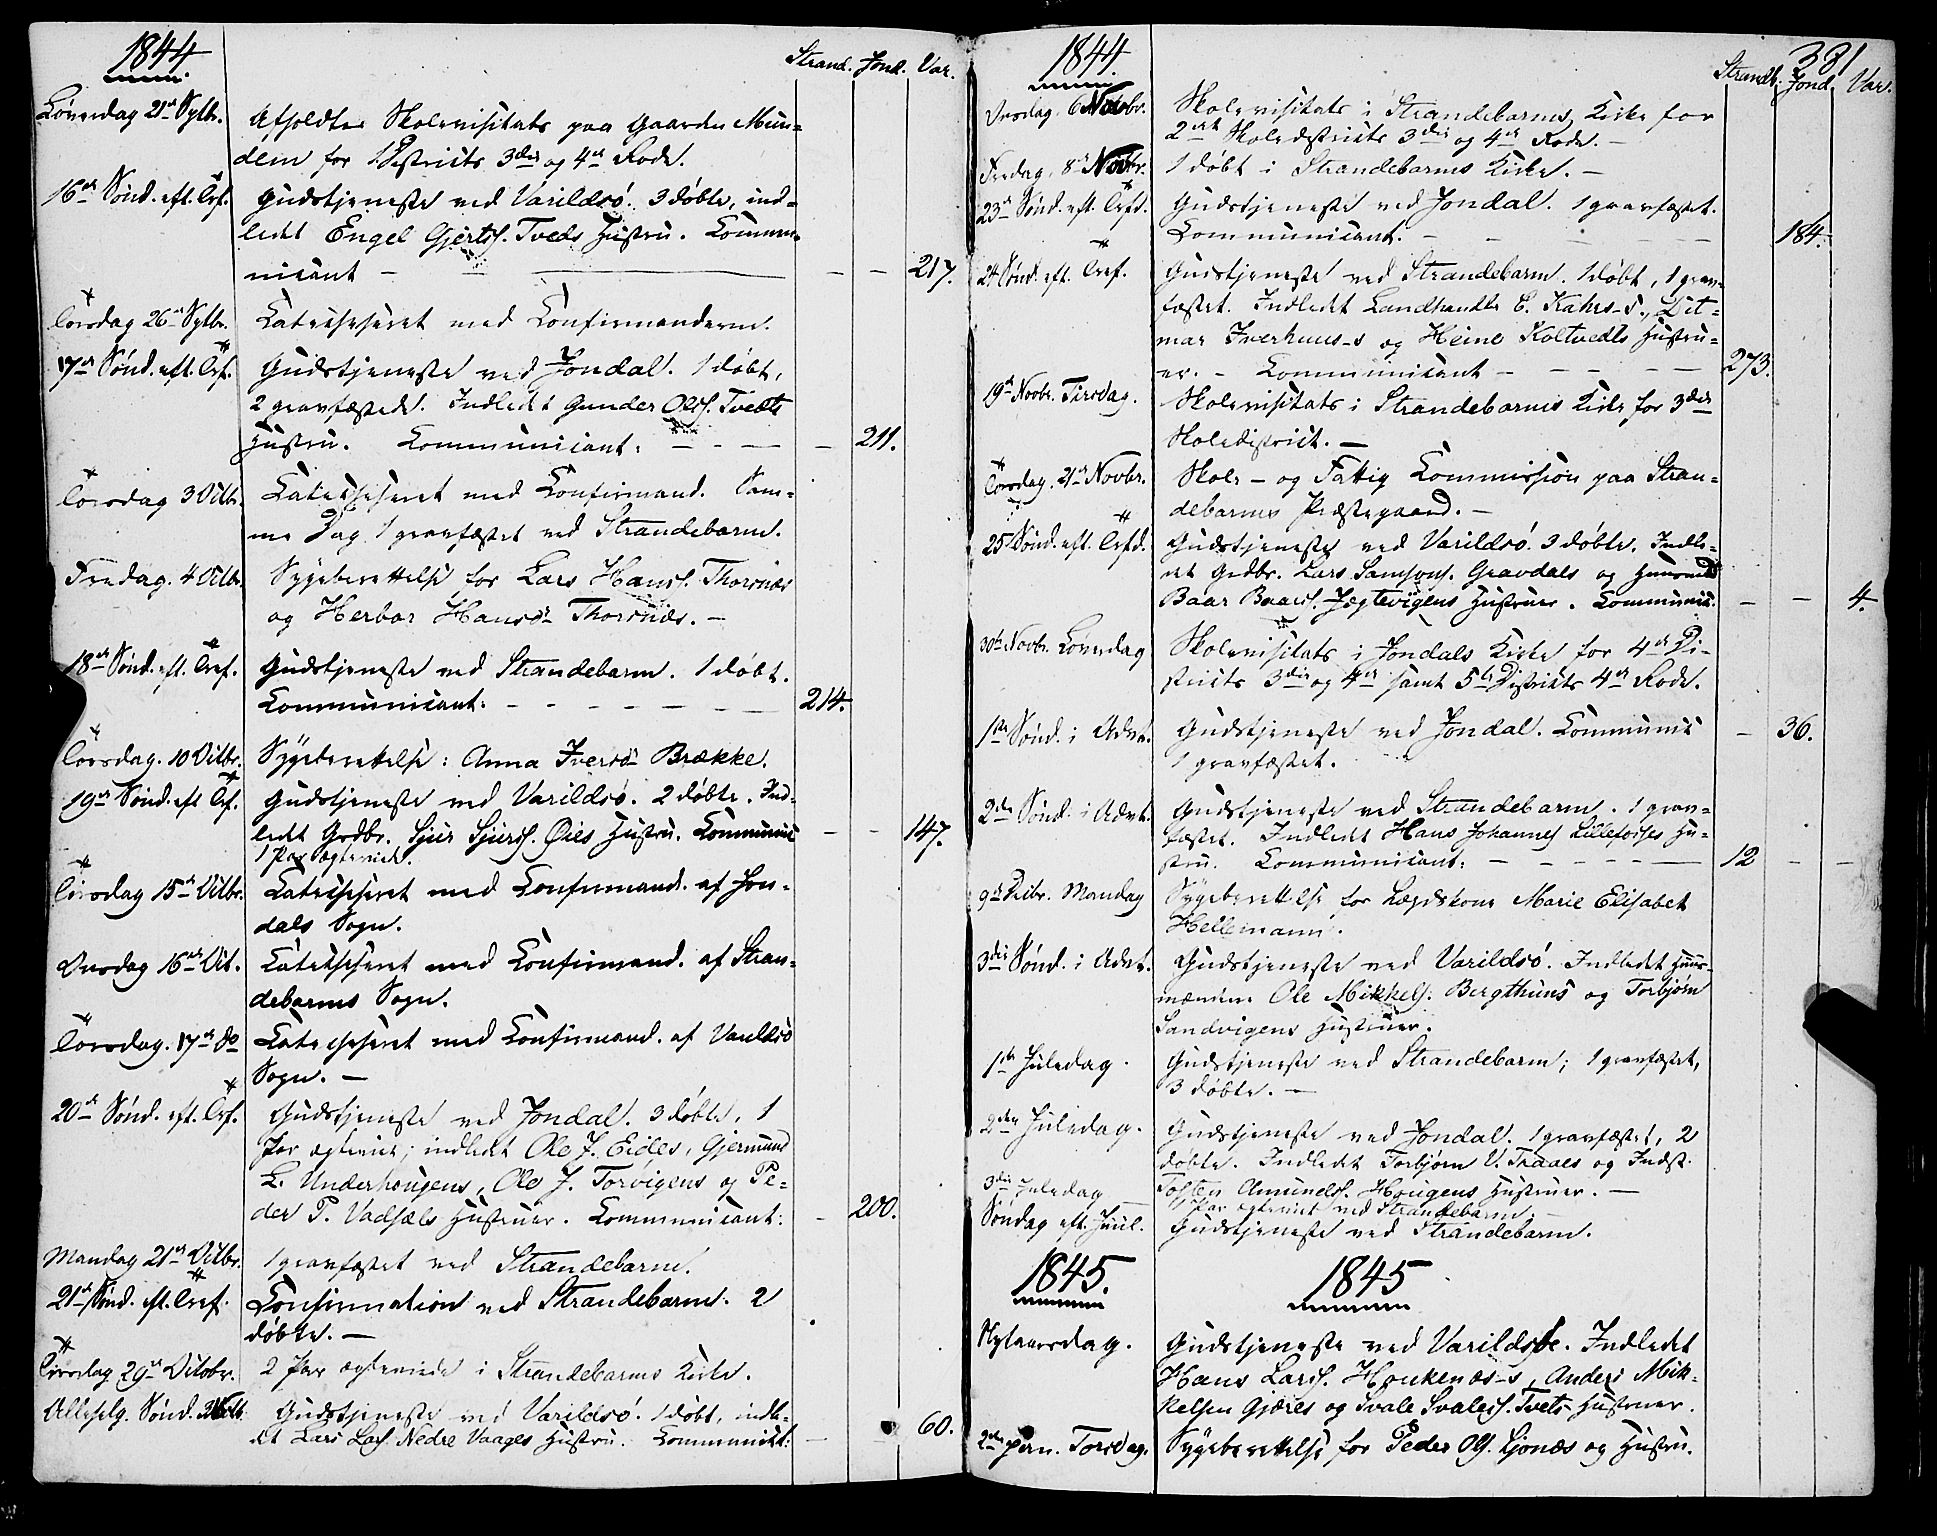 1844
Strand. Jond. Var.
Löverdag 21de Sptbr. Afholdtes Skolevisitats paa Gaarden Mun-
dem for 1 Districts 3die og 4de Rode.
16de Sönd. eft. Tref. Gudstjeneste ved Varildsö. 3 döbte, ind-
ledet Engel Gjertss. Tveds Hustru. Commu-
nicant — — 217.
Torsdag 26de Sptbr. Catechiseret med Confirmanderne.
17de Sönd. eft. Tref. Gudstjeneste ved Jondal. 1 döbt,
2 gravfæstede. Indledet Gunder Olss. Tvedts
Hustru. Communicant: — — — 211.
Torsdag 3 Octbr. Catechiseret med Confirmand. Sam-
me Dag 1 gravfæstet ved Strandebarm.
Fredag. 4 Octbr. Sygeberettelse for Lars Hanss. Thorsnæs
og Herbor Hansdr Thorsnæs. —
18de Sönd. eft. Tref. Gudstjeneste ved Strandebarm. 1 döbt.
Communicant. — — — 214.
Torsdag. 10 Octbr. Sygeberettelse: Anna Iversdr Brække.
19de Sönd. eft Tref. Gudstjeneste ved Varildsö. 2 döbte. Ind-
ledet Grdbr. Sjur Sjurss. Öies Hustru. Communic — — 147.
1 Par ægteviet.
Tirsdag 15de Octbr. Catechiseret med Confirmand. af Jon-
dals Sogn.
Onsdag 16de Oct. Catechiseret med Confirmand. af Stran-
debarms Sogn.
Torsdag. 17de do Catechiseret med Confirmand. af Varildsö
Sogn. —
20de Sönd. eft. Tref. Gudstjeneste ved Jondal. 3 döbte, 1
Par ægteviet; indledet Ole J. Eides, Gjermund
L. Underhougens, Ole J. Torvigens og Pe-
der P. Vadsæls Hustruer. Communicant: — 200.
Mandag 21de Octbr. 1 gravfæstet ved Strandebarm.
21de Sönd. eft. Tref. Confirmation ved Strandebarm. 2
döbte. —
Tirsdag 29de Octobr. 2 Par ægteviede i Strandebarms Kirke.
Allehelg. Sönd. Gudstjeneste ved Varildsö. 1 döbt, indle-
det Lars Lars. Nedre Vaages Hustru. Communict: — — 60.
1844. 331
Strandb. Jond. Var.
Onsdag, 6 Novbr. Skolevisitats i Strandebarms Kirke for
2det Skoledistricts 3die og 4de Rode. —
Fredag, 8de Novbr. 1 döbt i Strandebarms Kirke. —
23de Sönd. eft. Trefd. Gudstjeneste ved Jondal. 1 gravfæstet.
Communicant. — — — — 184.
24 Sönd. eft. Tref. Gudstjeneste ved Strandebarm. 1 döbt, 1 grav-
fæstet. Indledet Landhandler C. Kahrs-s., Dit-
mar Iverhuus-s og Heine Koltvedts Hustru-
er. — Communicant — — — — 273.
19de Novbr. Tirsdag. Skolevisitats i Strandebarms Kirke for 3die
Skoledistrict. —
Torsdag. 21de Novbr. Skole- og Fattig Commission paa Stran-
debarms Præstegaard. —
25 Sönd. eft. Trefd. Gudstjeneste ved Varildsö. 3 döbte. Indle-
det Grdbr. Lars Samsons. Gravdals og Huusmd
Baar Baars. Jægtevigens Hustruer. Communic. — — 4.
30te Novbr. Löverdag Skolevisitats i Jondals Kirke for 4de Di-
stricts 3die og 4de samt 5te Districts 4de Rode.
1ste Sönd. i Advt. Gudstjeneste ved Jondal. Communic — 36.
1 gravfæstet.
2den Sönd. i Advt. Gudstjeneste ved Strandebarm. 1 grav-
fæstet. Indledet Hans Johannes Lilletoises Hu-
stru. Communicant: — — — — 12 — —
9de Decbr. Mandag Sygeberettelse for Lægdskone Marie Elisabet
Hellemann.
3die Sönd. i Advt. Gudstjeneste ved Varildsö. Indledet Huus-
mændene Ole Mikkels. Bergthuns og Torbjörn
Sandvigens Hustruer.
1ste Juledag. Gudstjeneste ved Strandebarm; 1 gravfæstet,
3 döbte. —
2den Juledag. Gudstjeneste ved Jondal. 1 gravfæstet, 2
döbte. Indledet Torbjörn V. Traaes og Indst.
3die Juledag Tosten Amunds. Hougens Hustruer. —
1 Par ægteviet ved Strandebarm. —
Söndag eft. Juul. Gudstjeneste ved Strandebarm.
1845. 1845
Nytaarsdag. Gudstjeneste ved Varildsöe. Indledet
Hans Larss. Houkenæs-s, Anders Mik-
kelsen Gjæres og Svale Svaless. Tvets Hustruer.
2den Jan. Torsdag. Sygeberettelse for Peder Ols. Ljonæs og Hustru.